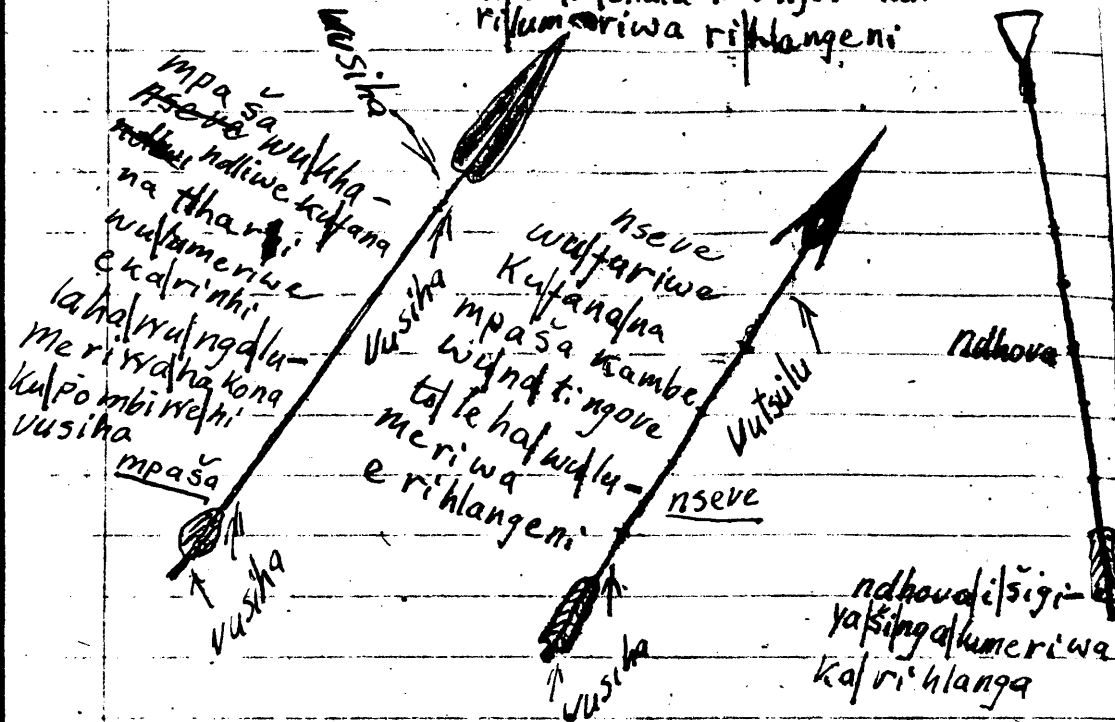 ri/lumeriwa ri/hlangeni
vusiha
mpaša
wu/kha-
ndliwe ku/fana
na tlhari
wu/lumeriwe
e ka/rinhi
laha/wu/nga/lu-
meriwa/ha kona
ku/pombiwe/hi
vusiha
mpaša
vusiha
vusiha
nseve
wu/tariwe
Ku/fana/na
mpaša kambe
wu/na tingove
to/le ha/wu/lu-
meriwa
e rihlangeni
vutsulu
nseve
vusiha
ndhova
ndhova/i/šigi-
ya/ši/nga/lumeriwa
ka/rihlanga